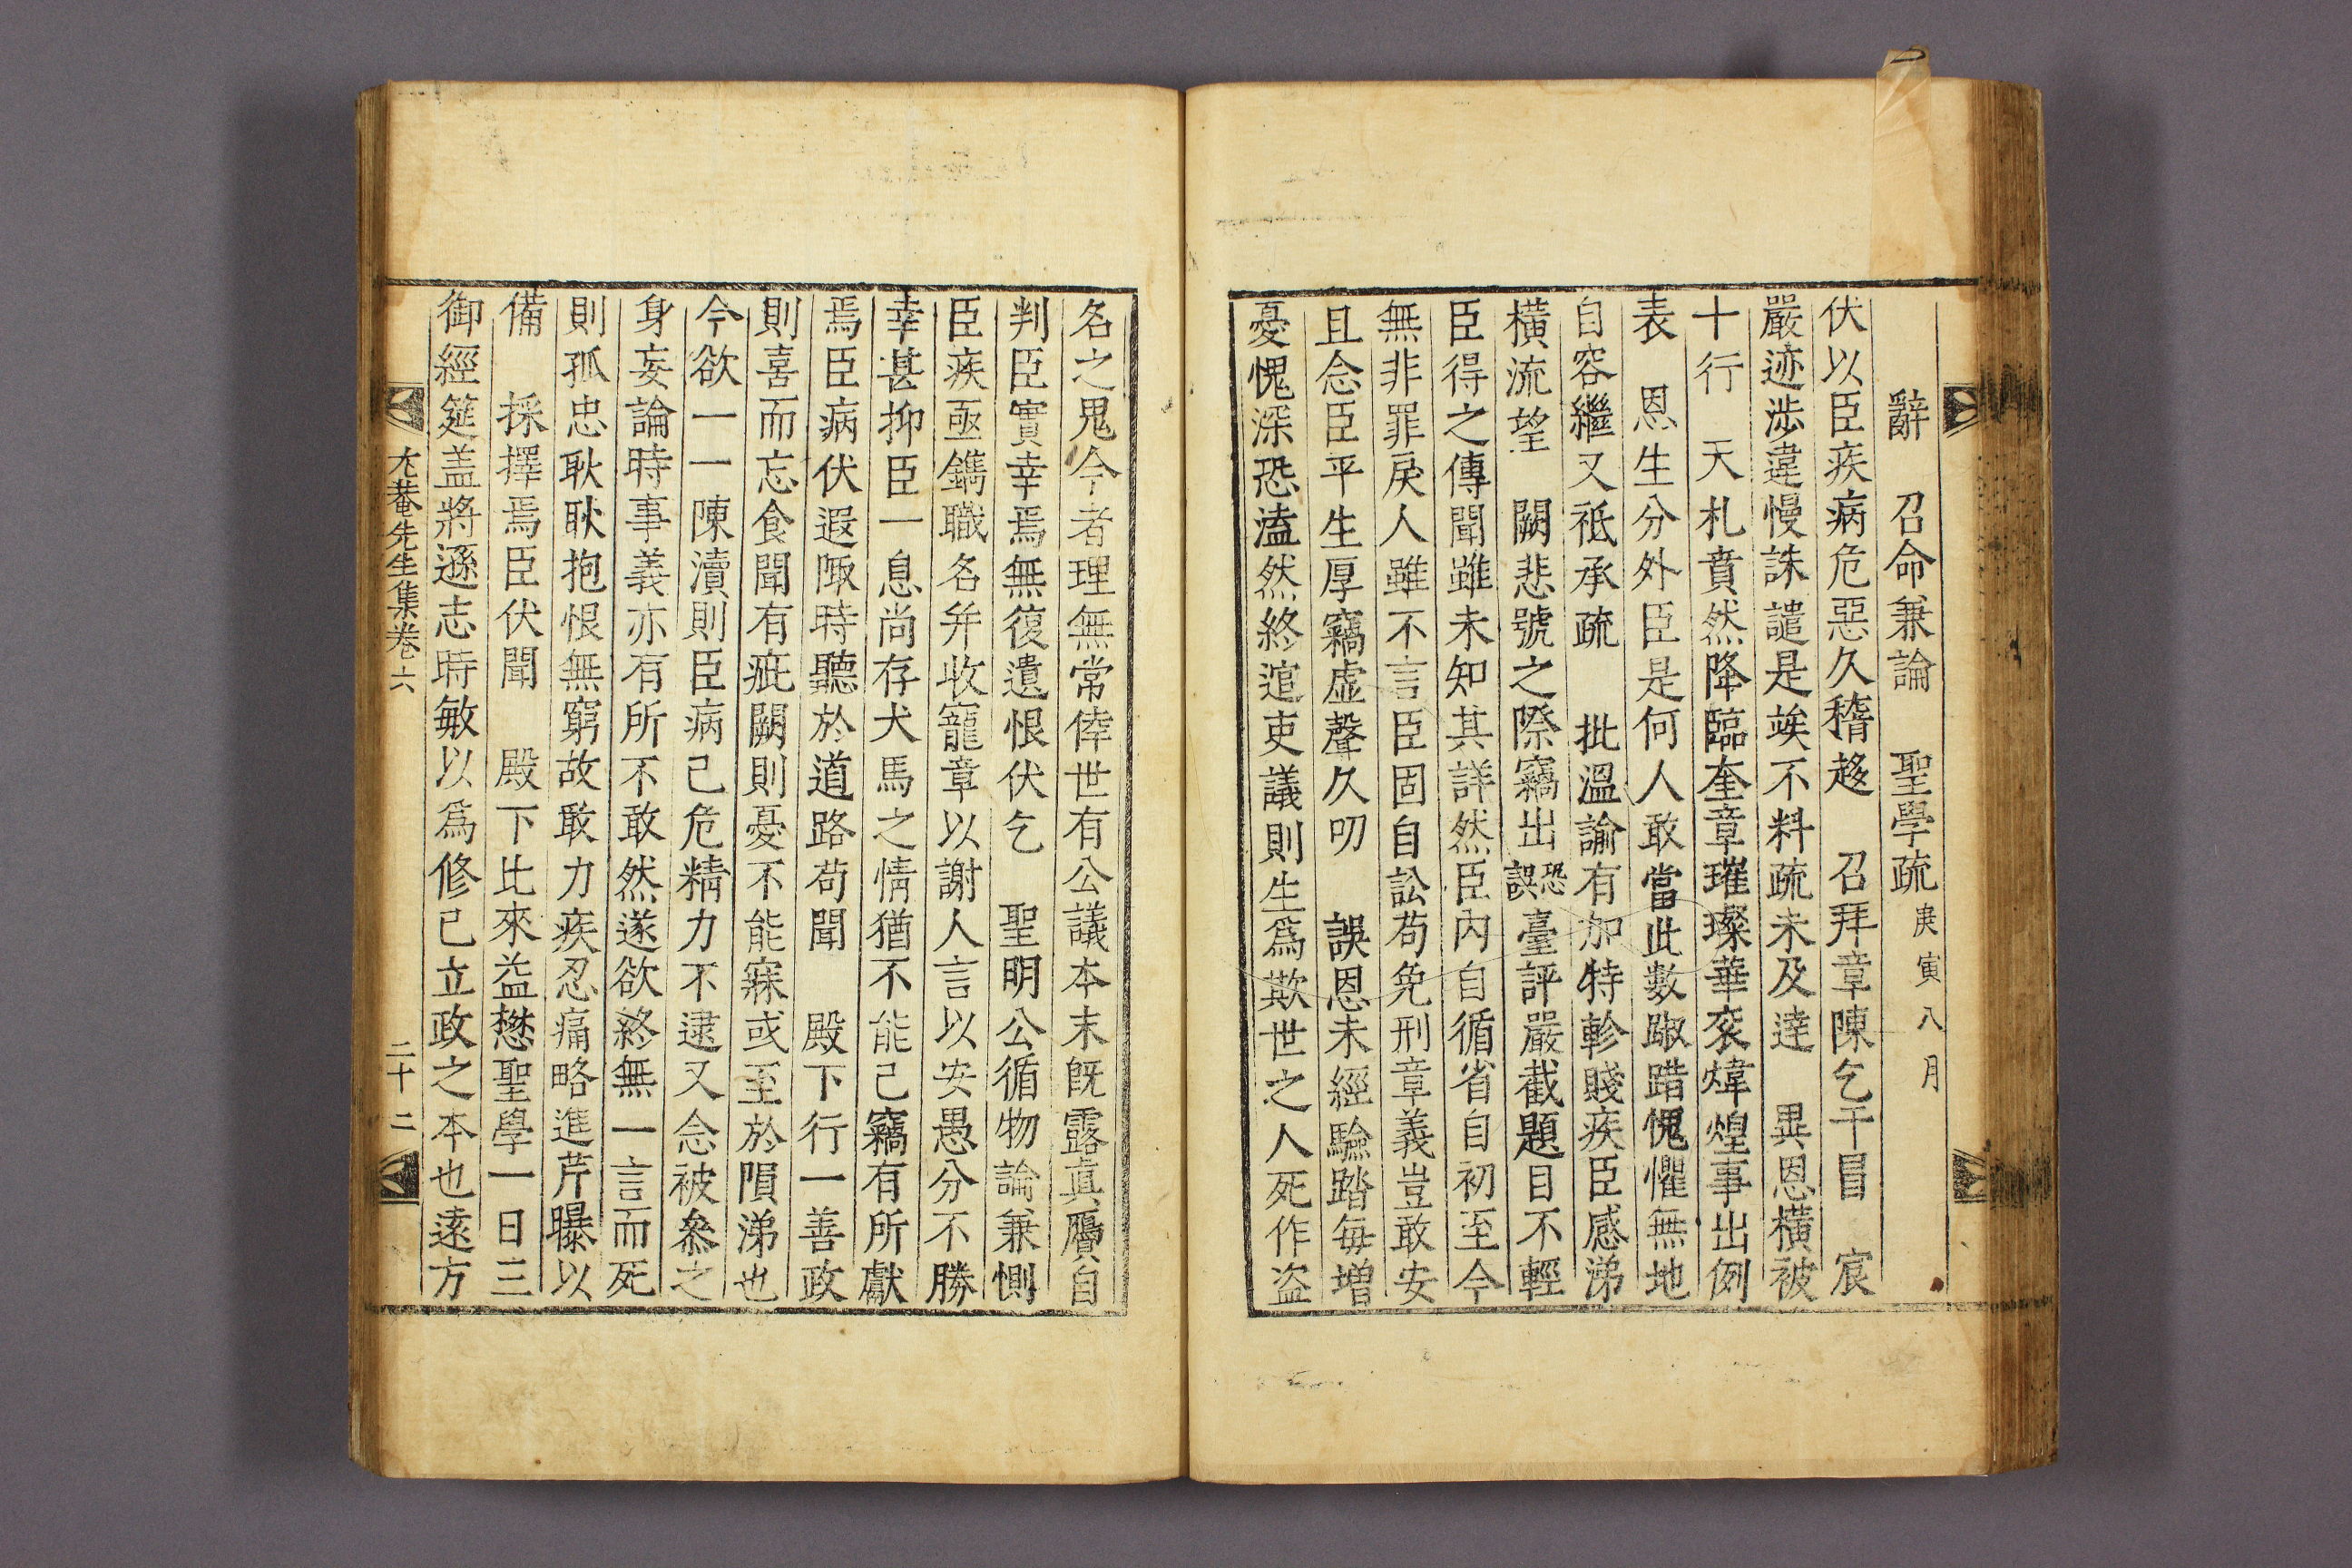 辭 召命兼論 聖學疏庚寅八月
伏以臣疾病危惡久稽趍 召拜章陳乞干冒 宸
嚴迹涉違慢誅譴是竢不料疏未及達 異恩橫被
十行 天札賁然降臨奎章璀璨華衮煒煌事出例
表 恩生分外臣是何人敢當此數踧踖愧懼無地
自容繼又祗承疏 批溫諭有加特軫賤疾臣感涕
橫流望 闕悲號之際竊出恐誤臺評嚴截題目不輕
臣得之傳聞雖未知其詳然臣內自循省自初至今
無非罪戾人雖不言臣固自訟苟免刑章義豈敢安
且念臣平生厚竊虛聲久叨 誤恩未經驗踏每增
憂愧深恐溘然終逭吏議則生爲欺世之人死作盜
名之鬼今者理無常倖世有公議本末旣露眞贗自
判臣實幸焉無復遺恨伏乞 聖明公循物論兼惻
臣疾亟鐫職名幷收寵章以謝人言以安愚分不勝
幸甚抑臣一息尚存犬馬之情猶不能已竊有所獻
焉臣病伏遐陬時聽於道路苟聞 殿下行一善政
則喜而忘食聞有疵闕則憂不能寐或至於隕涕也
今欲一一陳瀆則臣病已危精力不逮又念被叅之
身妄論時事義亦有所不敢然遂欲終無一言而死
則孤忠耿耿抱恨無窮故敢力疾忍痛略進芹曝以
備 採擇焉臣伏聞 殿下比來益懋聖學一日三
御經筵盖將遜志時敏以爲修己立政之本也遠方
尤菴先生集卷六 二十二